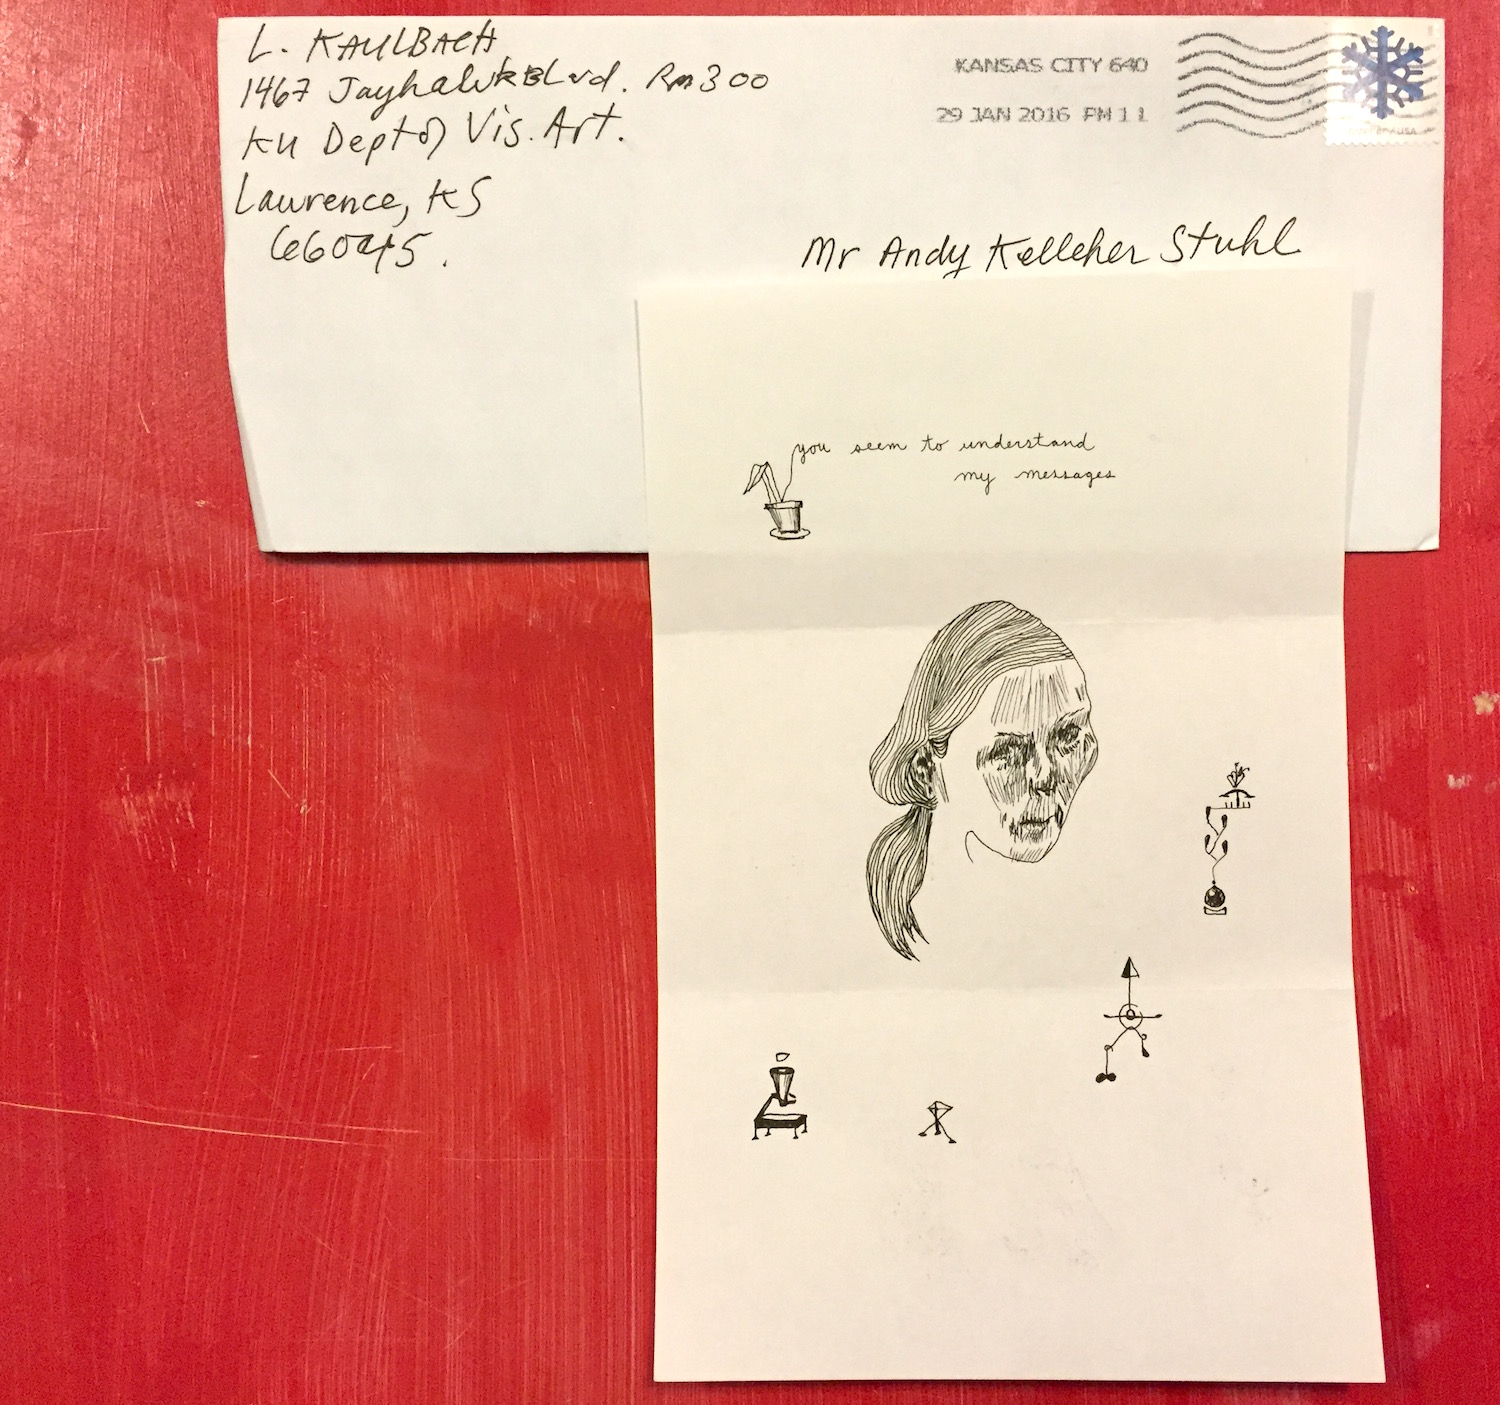 L. KAULBACH
1467 Jayhawk Blvd. Rm 300
KU Dept of Vis. Art.
Lawrence, KS
66045.
KANSAS CITY 640
29 JAN 2016 PM 1 L
Mr Andy Kelleher Stuhl
you seem to understand
my messages